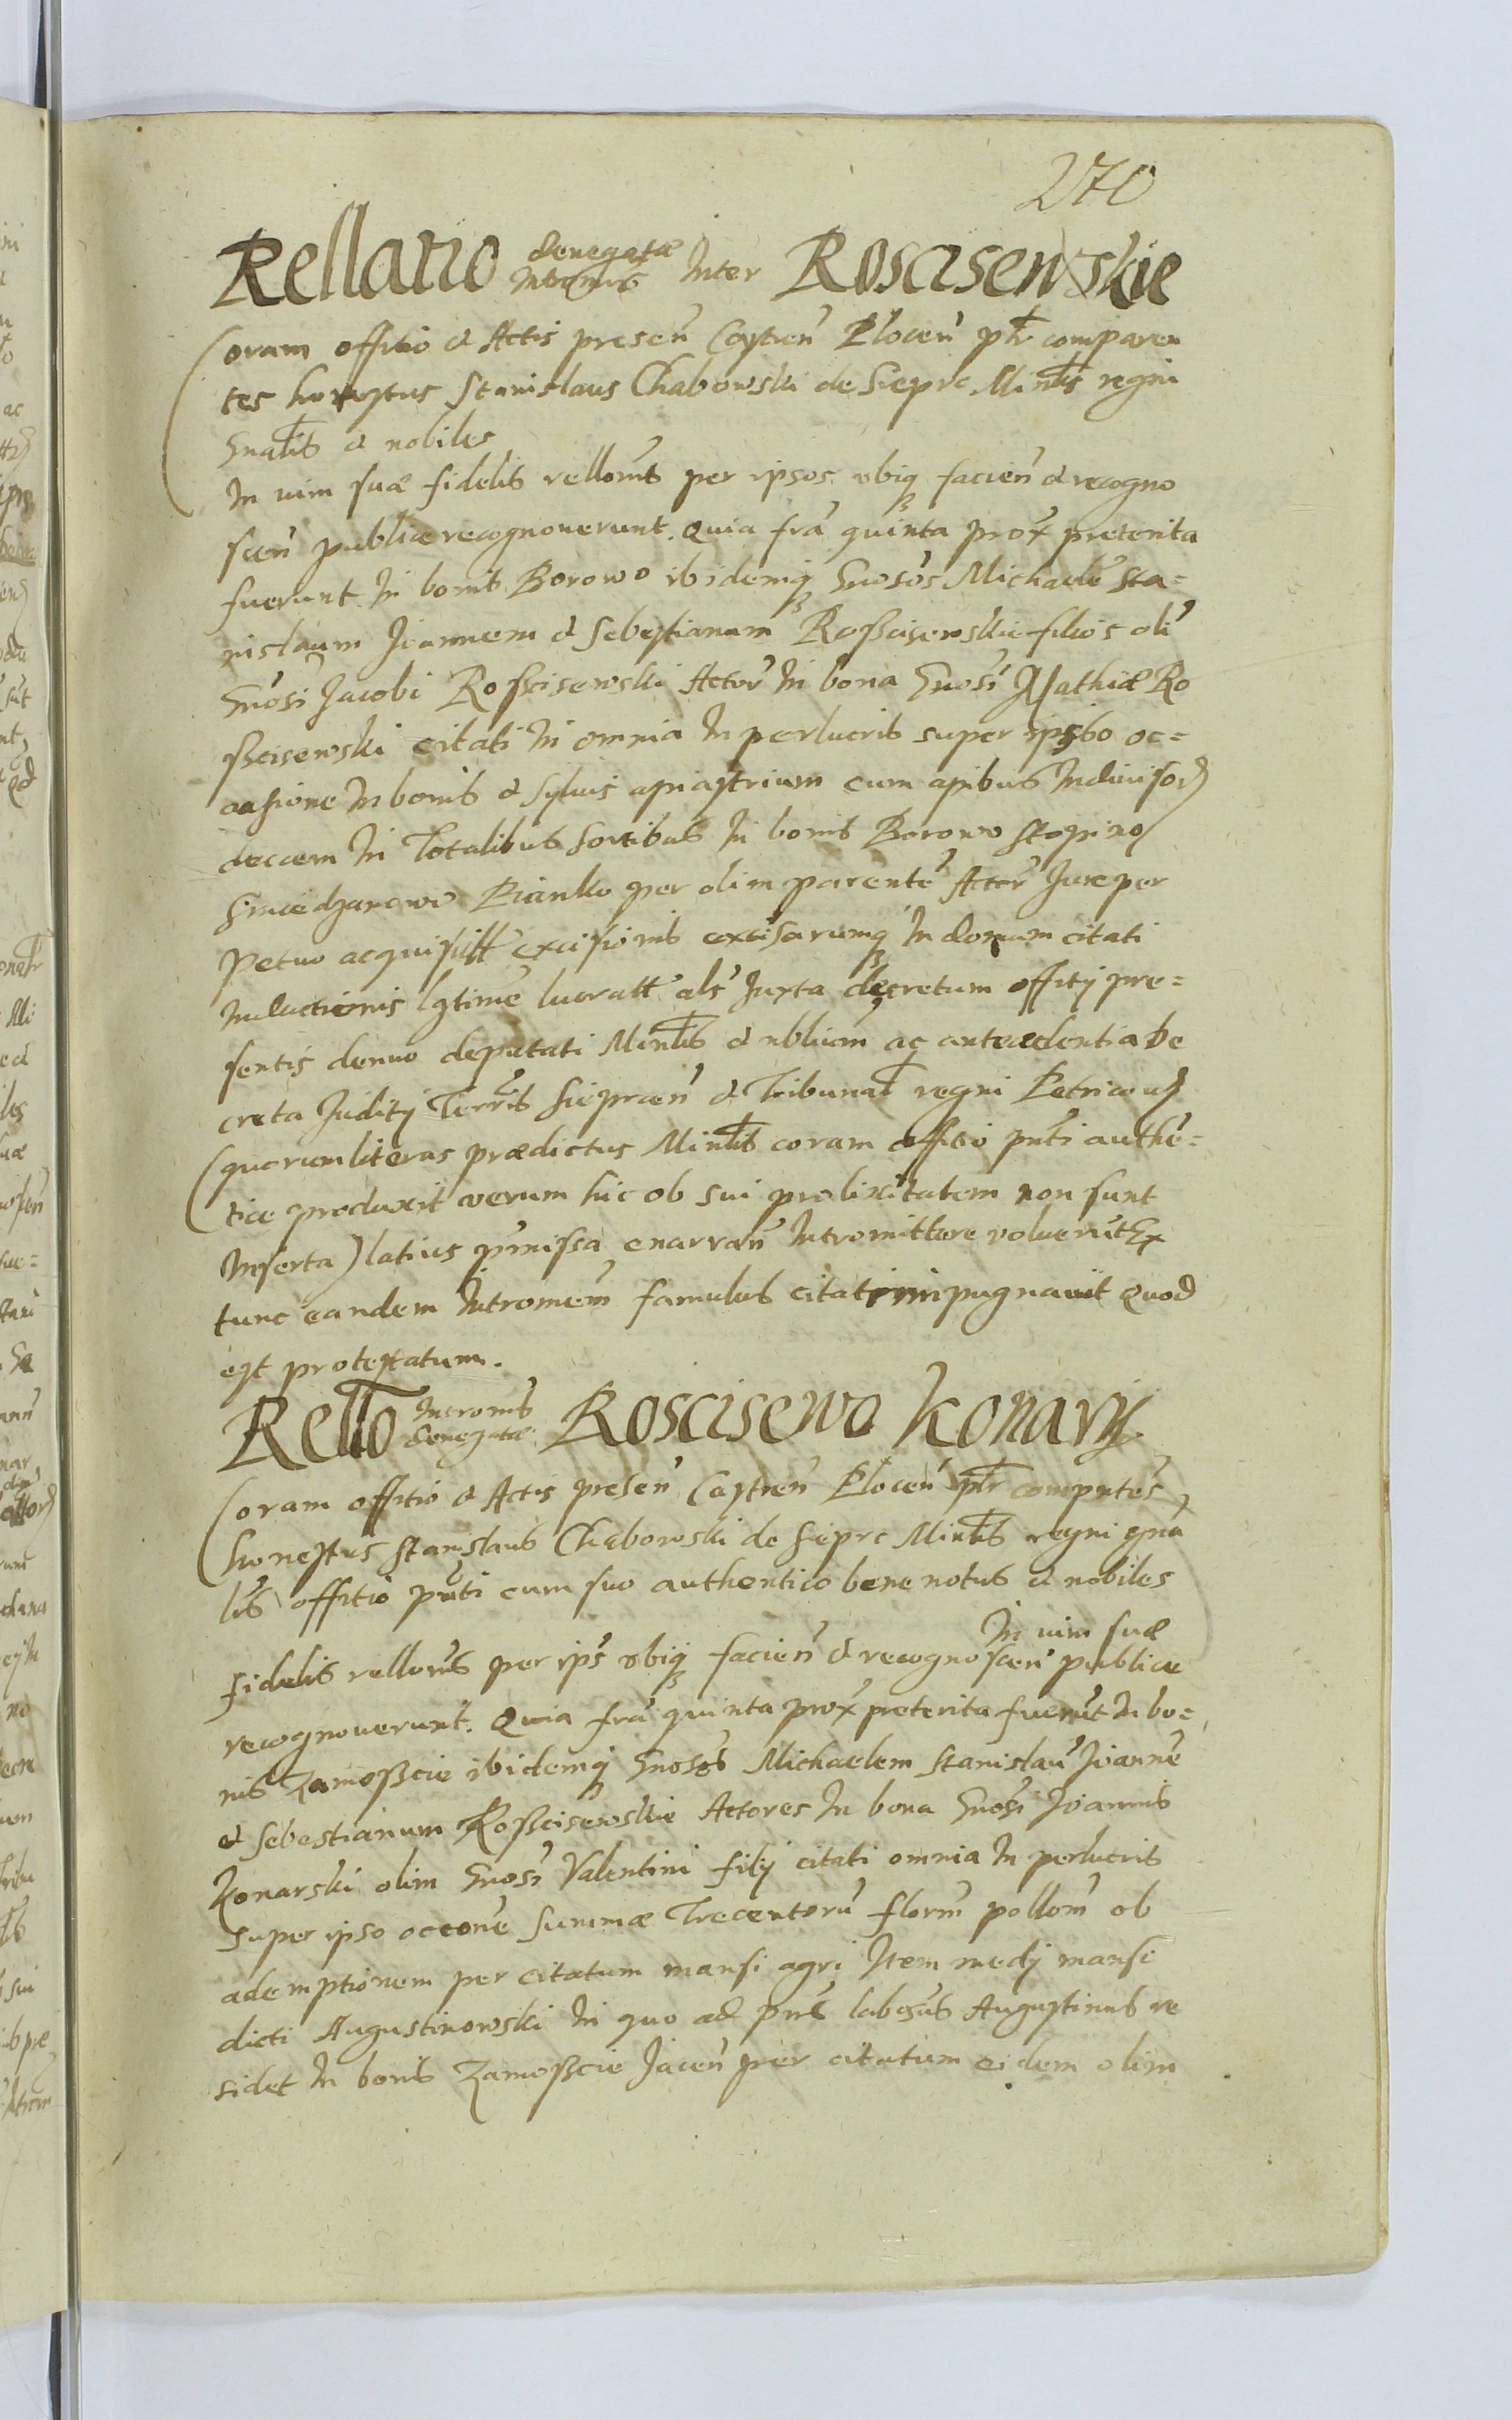 270
Rellatio denegatæ Intromis Inter Roscisewskie
Coram offitio & Actis presen Castren Plocen plr comparen
tes honestus Stanislaus Chabowski de Sieprc Minlis regni
Gnalis & nobiles
In vim suæ fidelis rellonis per ipsos ubiq facien & recogno
scen publice recognoverunt. Quia fra quinta prox preterita
fuerunt In bonis Borowo ibidemq Gnosos Michaele Sta=
nislaum Joannem & Sebestianum Rosscisewskie filios oli
Gnosi Jacobi Rosscisewski Actor In bona Gnosi Mathiæ Ro
sscisewski citati In omnia In perlucris super ipso oc=
casione In bonis & sylvis apiastrium cum apibus Indivisor
decem In Totalibus sortibus In bonis Borowo
Pianko per olim parente Actor Jure per
petuo acquisitt excisionis excisarumq In domum citati
Inductionis lgtime lucratt als Juxta decretum offitij pre=
sentis denuo deputati Minlis & nblium ac antecedentia De
creta Juditij Terris Sieprcen & Tribunal regni Petricov
(quorum literas prædictus Minlis coram offitio pnti authe=
tice produxit verum hic ob sui prolixitatem non sunt
Inserta) latius pmissa enarran Intromittere voluerut Ex
tunc eandem Intromem famulus citati impugnavit Quod
est protestatum.
Rello Intromis denegatæ Roscisewo Konarsj
Coram offitio & Actis presen Castren Plocen plr compntes
honestus Stanislaus Chabowski de Sieprc Minlis regni gna
lis offitio pnti cum suo authentico bene notus & nobiles
In vim suæ
fidelis rellonis per ips ubiq facien & recognoscen publice
recognoverunt. Quia fra quinta prox preterita fuerut In bo=
nis Zamosscie ibidemq Gnosos Michaelem Stanislau Joanne
& Sebestianum Rosscisewskie Actores In bona Gnosi Joannis
Konarski olim Gnosi Valentini filij citati omnia In perlucris
super ipso occone summæ Trecentoru florm pollom ob
ademptionem per citatum mansi agri Item medij mansi
dicti Augustinowski In quo ad pns labosus Augustinus re
sidet In bonis Zamosscie Jacen per citatum eidem olim